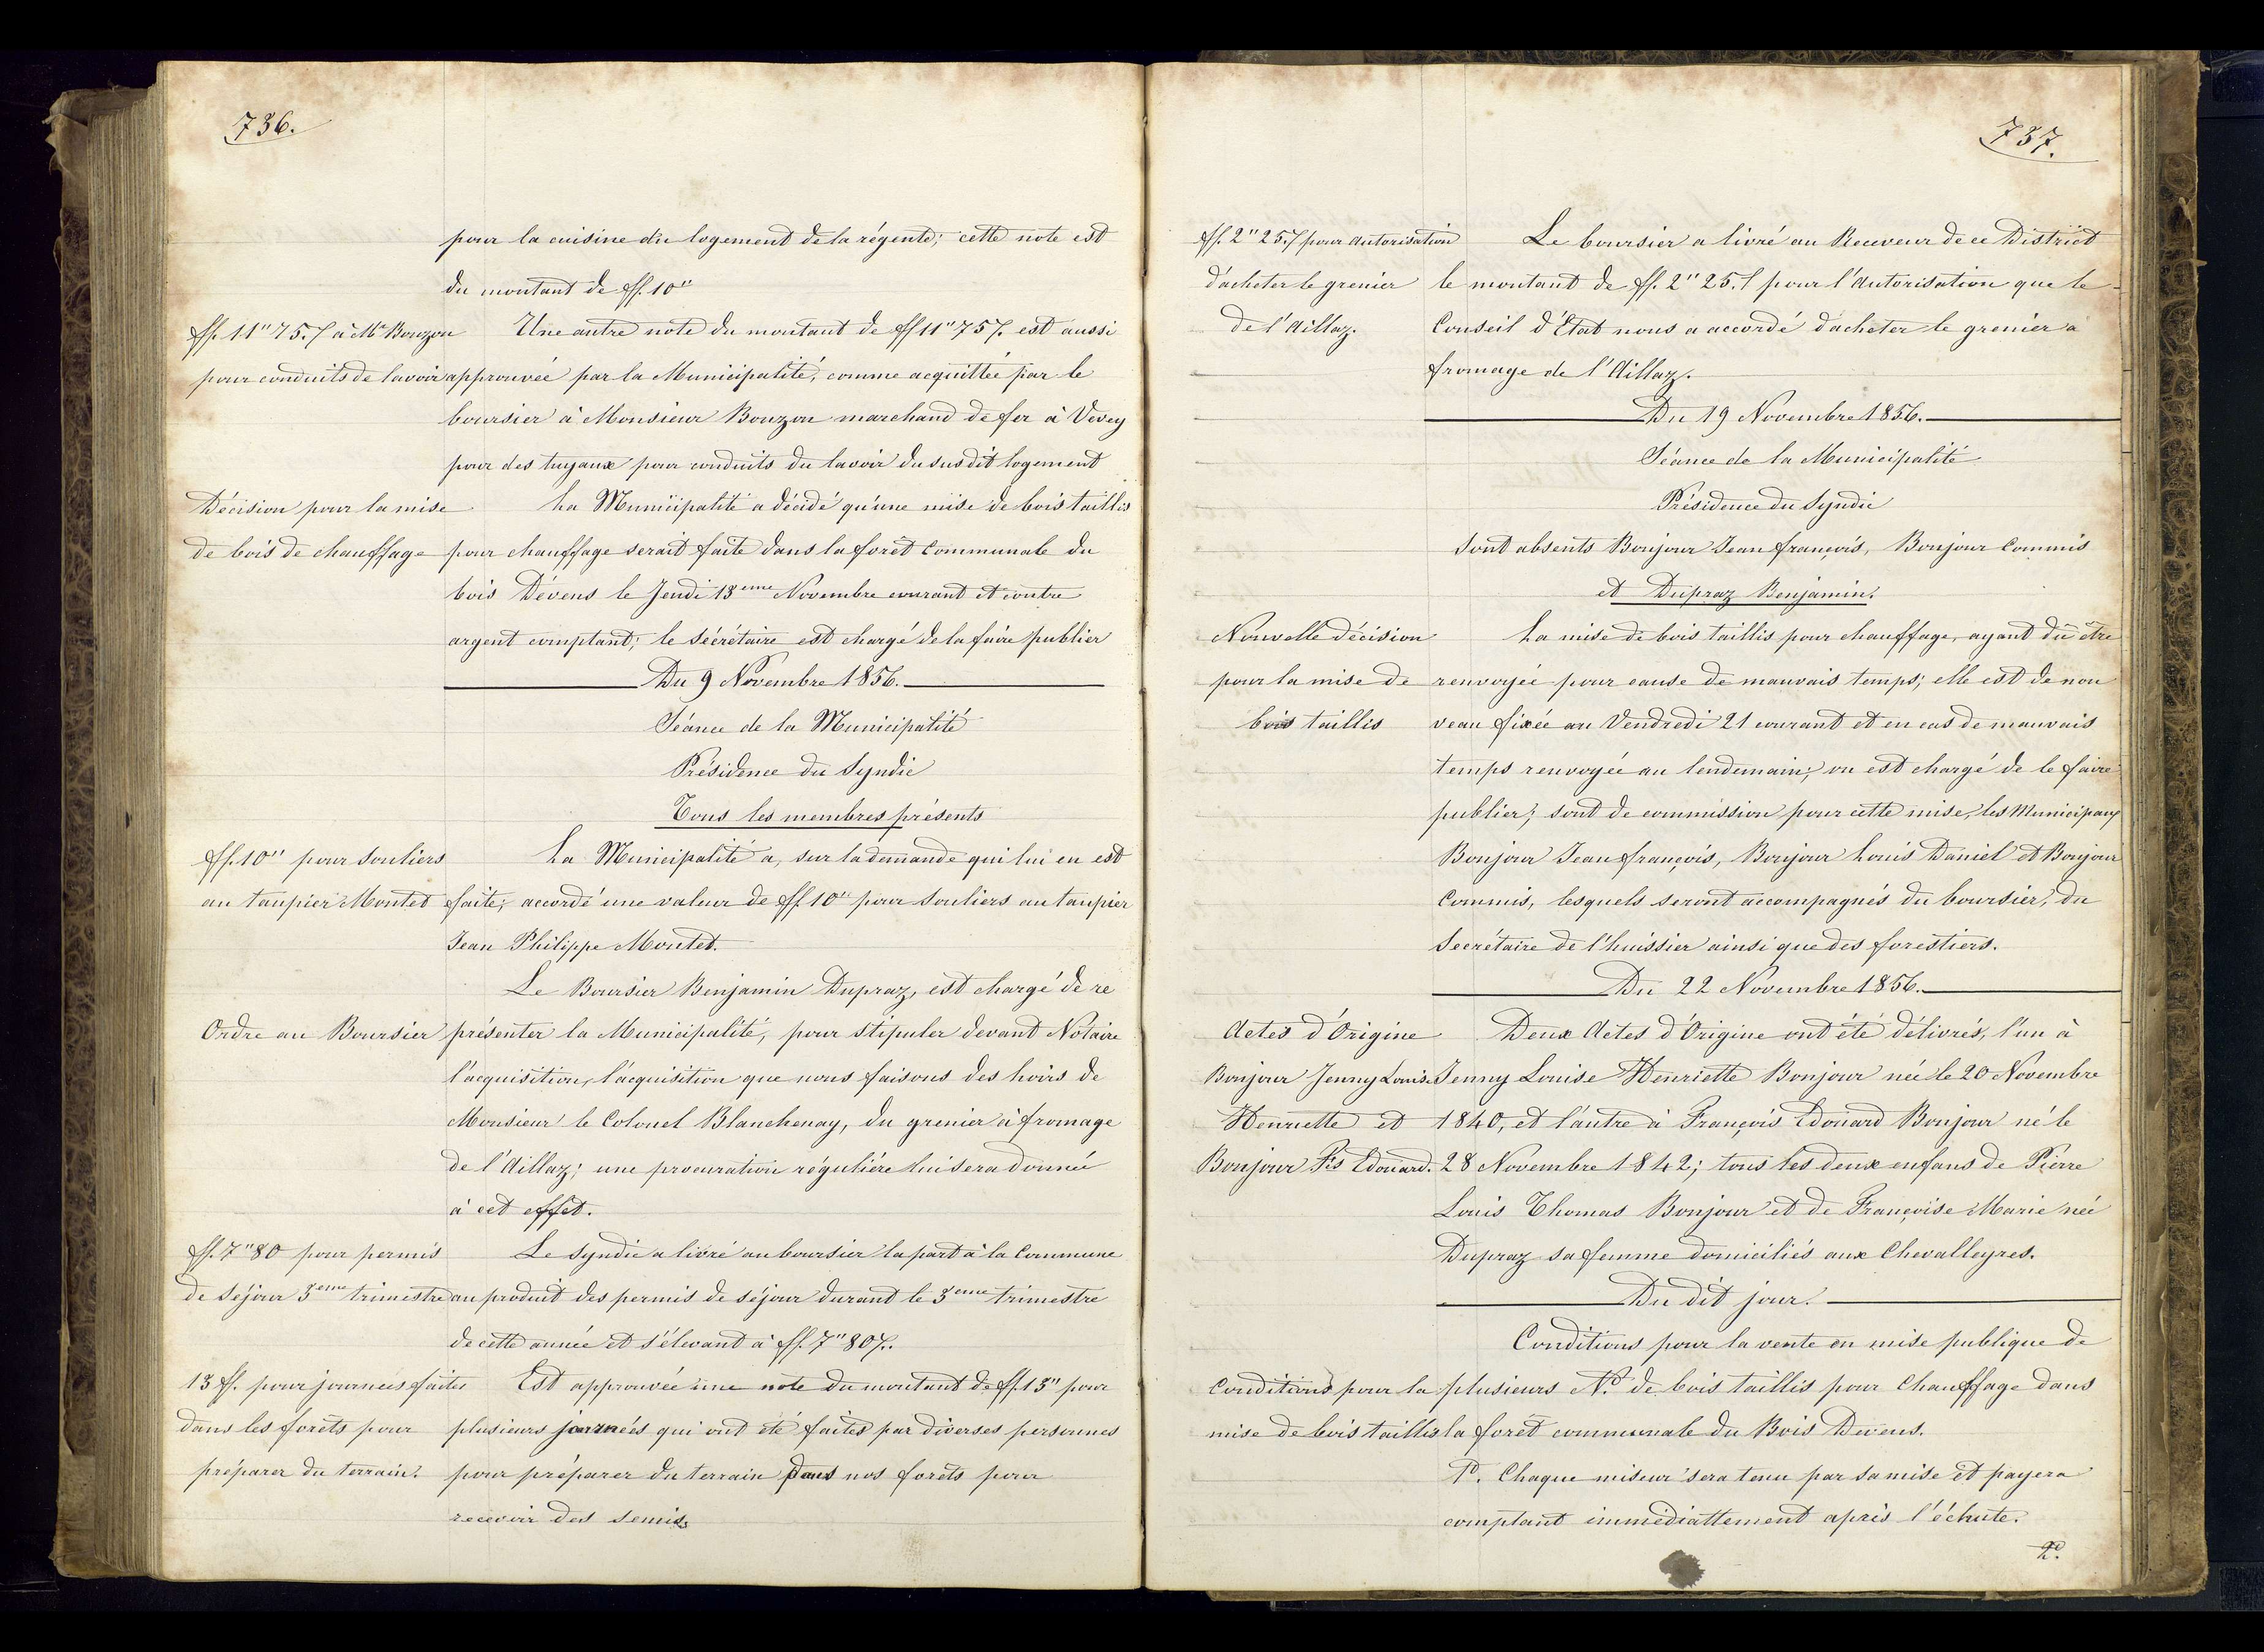 736.
pour la cuisine du logement de la régente; cette note est
du montant de ff. 10"
ff. 11" 75. f à Mr Bouzon
pour conduits de lavoir
Une autre note du montant de ff 11" 75 f. est aussi
approuvée par la Municipalité, comme acquittée par le
boursier à Monsieur Bouzon marchand de fer à Vevey
pour des tuyaux pour conduits du lavoir du susdit logement
Décision pour la mise
de bois de chauffage
La Municipalité a décidé qu'une mise de bois taillis
pour chauffage serait faite dans la forêt Communale du
bois Dévens le Jeudi 13eme Novembre courant et contre
argent comptant; le Sécrétaire est chargé de la faire publier
Du 9 Novembre 1856.
Séance de la Municipalité
Présidence du Syndic
Tous les membres présents
ff. 10" pour Souliers
au taupier Montet
La Municipalité a, sur la demande qui lui en est
faite, accordé une valeur de ff. 10" pour Souliers au taupier
Jean Philippe Montet.
Ordre au Boursier
Le Boursier Benjamin Dupraz, est chargé de re
présenter la Municipalité, pour stipuler devant Notaire
l'acquisition, l'acquisition que nous faisons des hoirs de
Monsieur le Colonel Blanchenay, du grenier à fromage
de l'Aillaz; une procuration régulière lui sera donnée
à cet effet.
ff. 7" 80 pour permis
de Séjour 3eme trimestre
Le Syndic a livré au boursier la part à la Commune
au produit des permis de séjour durant le 3eme trimestre
de cette année et s'élevant à ff. 7" 80 f.
13 ff. pour journées faites
dans les forêts pour
préparer du terrain.
Est approuvée une note du montant de ff. 13" pour
plusieurs journées qui ont été faites par diverses personnes
pour préparer du terrain dans nos forêts pour
recevoir des semis.
737.
ff. 2" 25. f pour Autorisation
d'acheter le grenier
de l'Aillaz.
Le boursier a livré au Receveur de ce District
le montant de ff. 2" 25. f pour l'Autorisation que le
Conseil d'Etat nous a accordé d'acheter le grenier à
fromage de l'Aillaz.
Du 19 Novembre 1856.
Séance de la Municipalité
Présidence du Syndic
Sont absents Bonjour Jean françois, Bonjour Commis
et Dupraz Benjamin.
Nouvelle décision
pour la mise de
bois taillis
La mise de bois taillis pour chauffage, ayant dû être
renvoyée pour cause de mauvais temps; elle est de nou
veau fixée au Vendredi 21 courant et en cas de mauvais
temps renvoyée au lendemain; on est chargé de le faire
publier; sont de commission pour cette mise, les Municipaux
Bonjour Jean françois, Bonjour Louis Daniel et Bonjour
Commis, lesquels seront accompagnés du boursier, du
Secrétaire de l'huissier ainsi que des forestiers.
Du 22 Novembre 1856.
Actes d'Origine
Bonjour Jenny Louise
Henriette et
Bonjour Fçs Edouard.
Deux Actes d'Origine ont été délivrés, l'un à
Jenny Louise Henriette Bonjour née le 20 Novembre
1840, et l'autre à François Edouard Bonjour né le
28 Novembre 1842; tous les deux enfans de Pierre
Louis Thomas Bonjour et de Françoise Marie née
Dupraz sa femme domiciliés aux Chevalleyres.
Du dit jour.
Conditions pour la
mise de bois taillis
Conditions pour la vente en mise publique de
plusieurs No. de bois taillis pour Chauffage dans
la forêt communale du Bois Devens.
1o. Chaque miseur sera tenu par sa mise et payera
comptant immédiattement après l'échute.
2o.